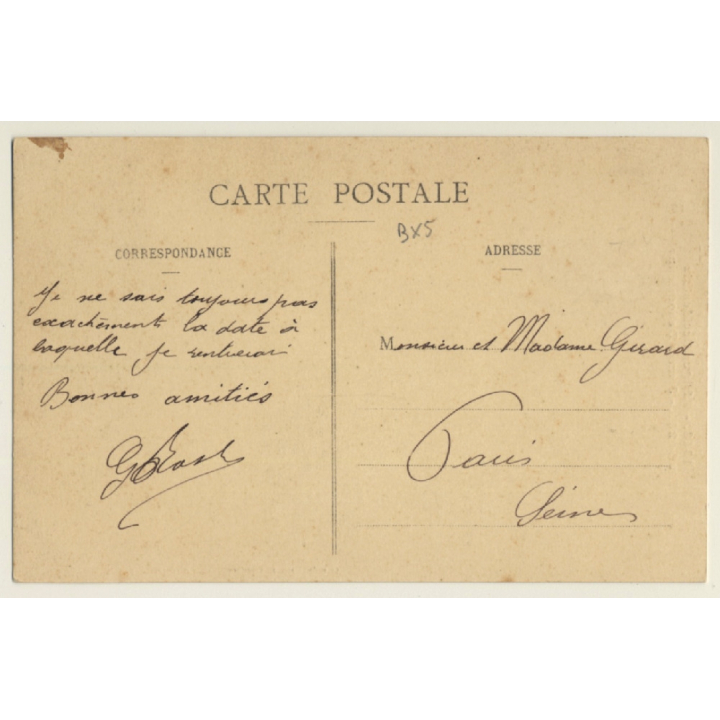 CARTE POSTALE
BX5
CORRESPONDANCE
Je ne sais toujours pas
exactement la date à
laquelle je rentrerai
Bonnes amitiés
ADRESSE
Monsieur et Madame Girard
Paris
Seine